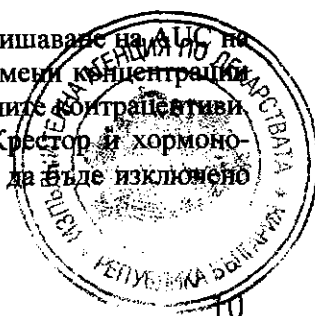 ишаване на AUC на
мени концентрации
ните контрацептиви.
Крестор и хормоно-
да бъде изключено
ИЗПЪЛНИТЕЛНА АГЕНЦИЯ ПО ЛЕКАРСТВАТА
РЕПУБЛИКА БЪЛГАРИЯ
10